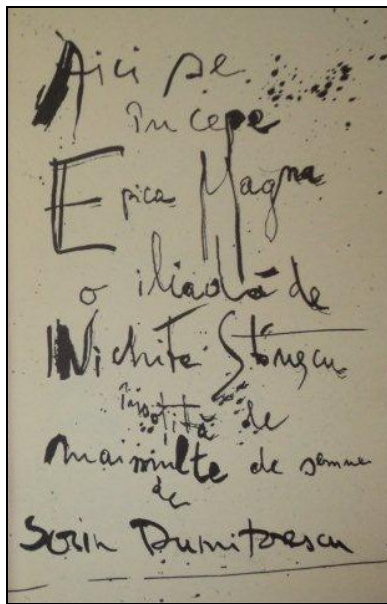 Aici se
începe
Epica Magna
o iliadă de
Nichita Stănescu
însoțită de
mai multe de semne
de
Sorin Dumitrescu